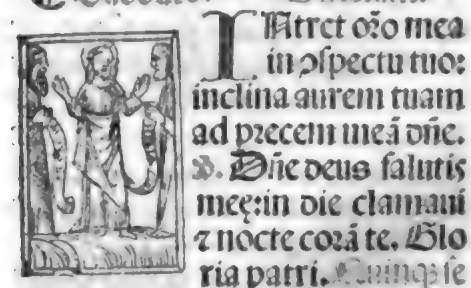 INtret or̃o mea
in ↄspectu tuo:
inclina aurem tuam
ad precem meã dñe.
Dñe deus salutis
meę: in die clamaui
⁊ nocte corã te. Glo
ria patri.